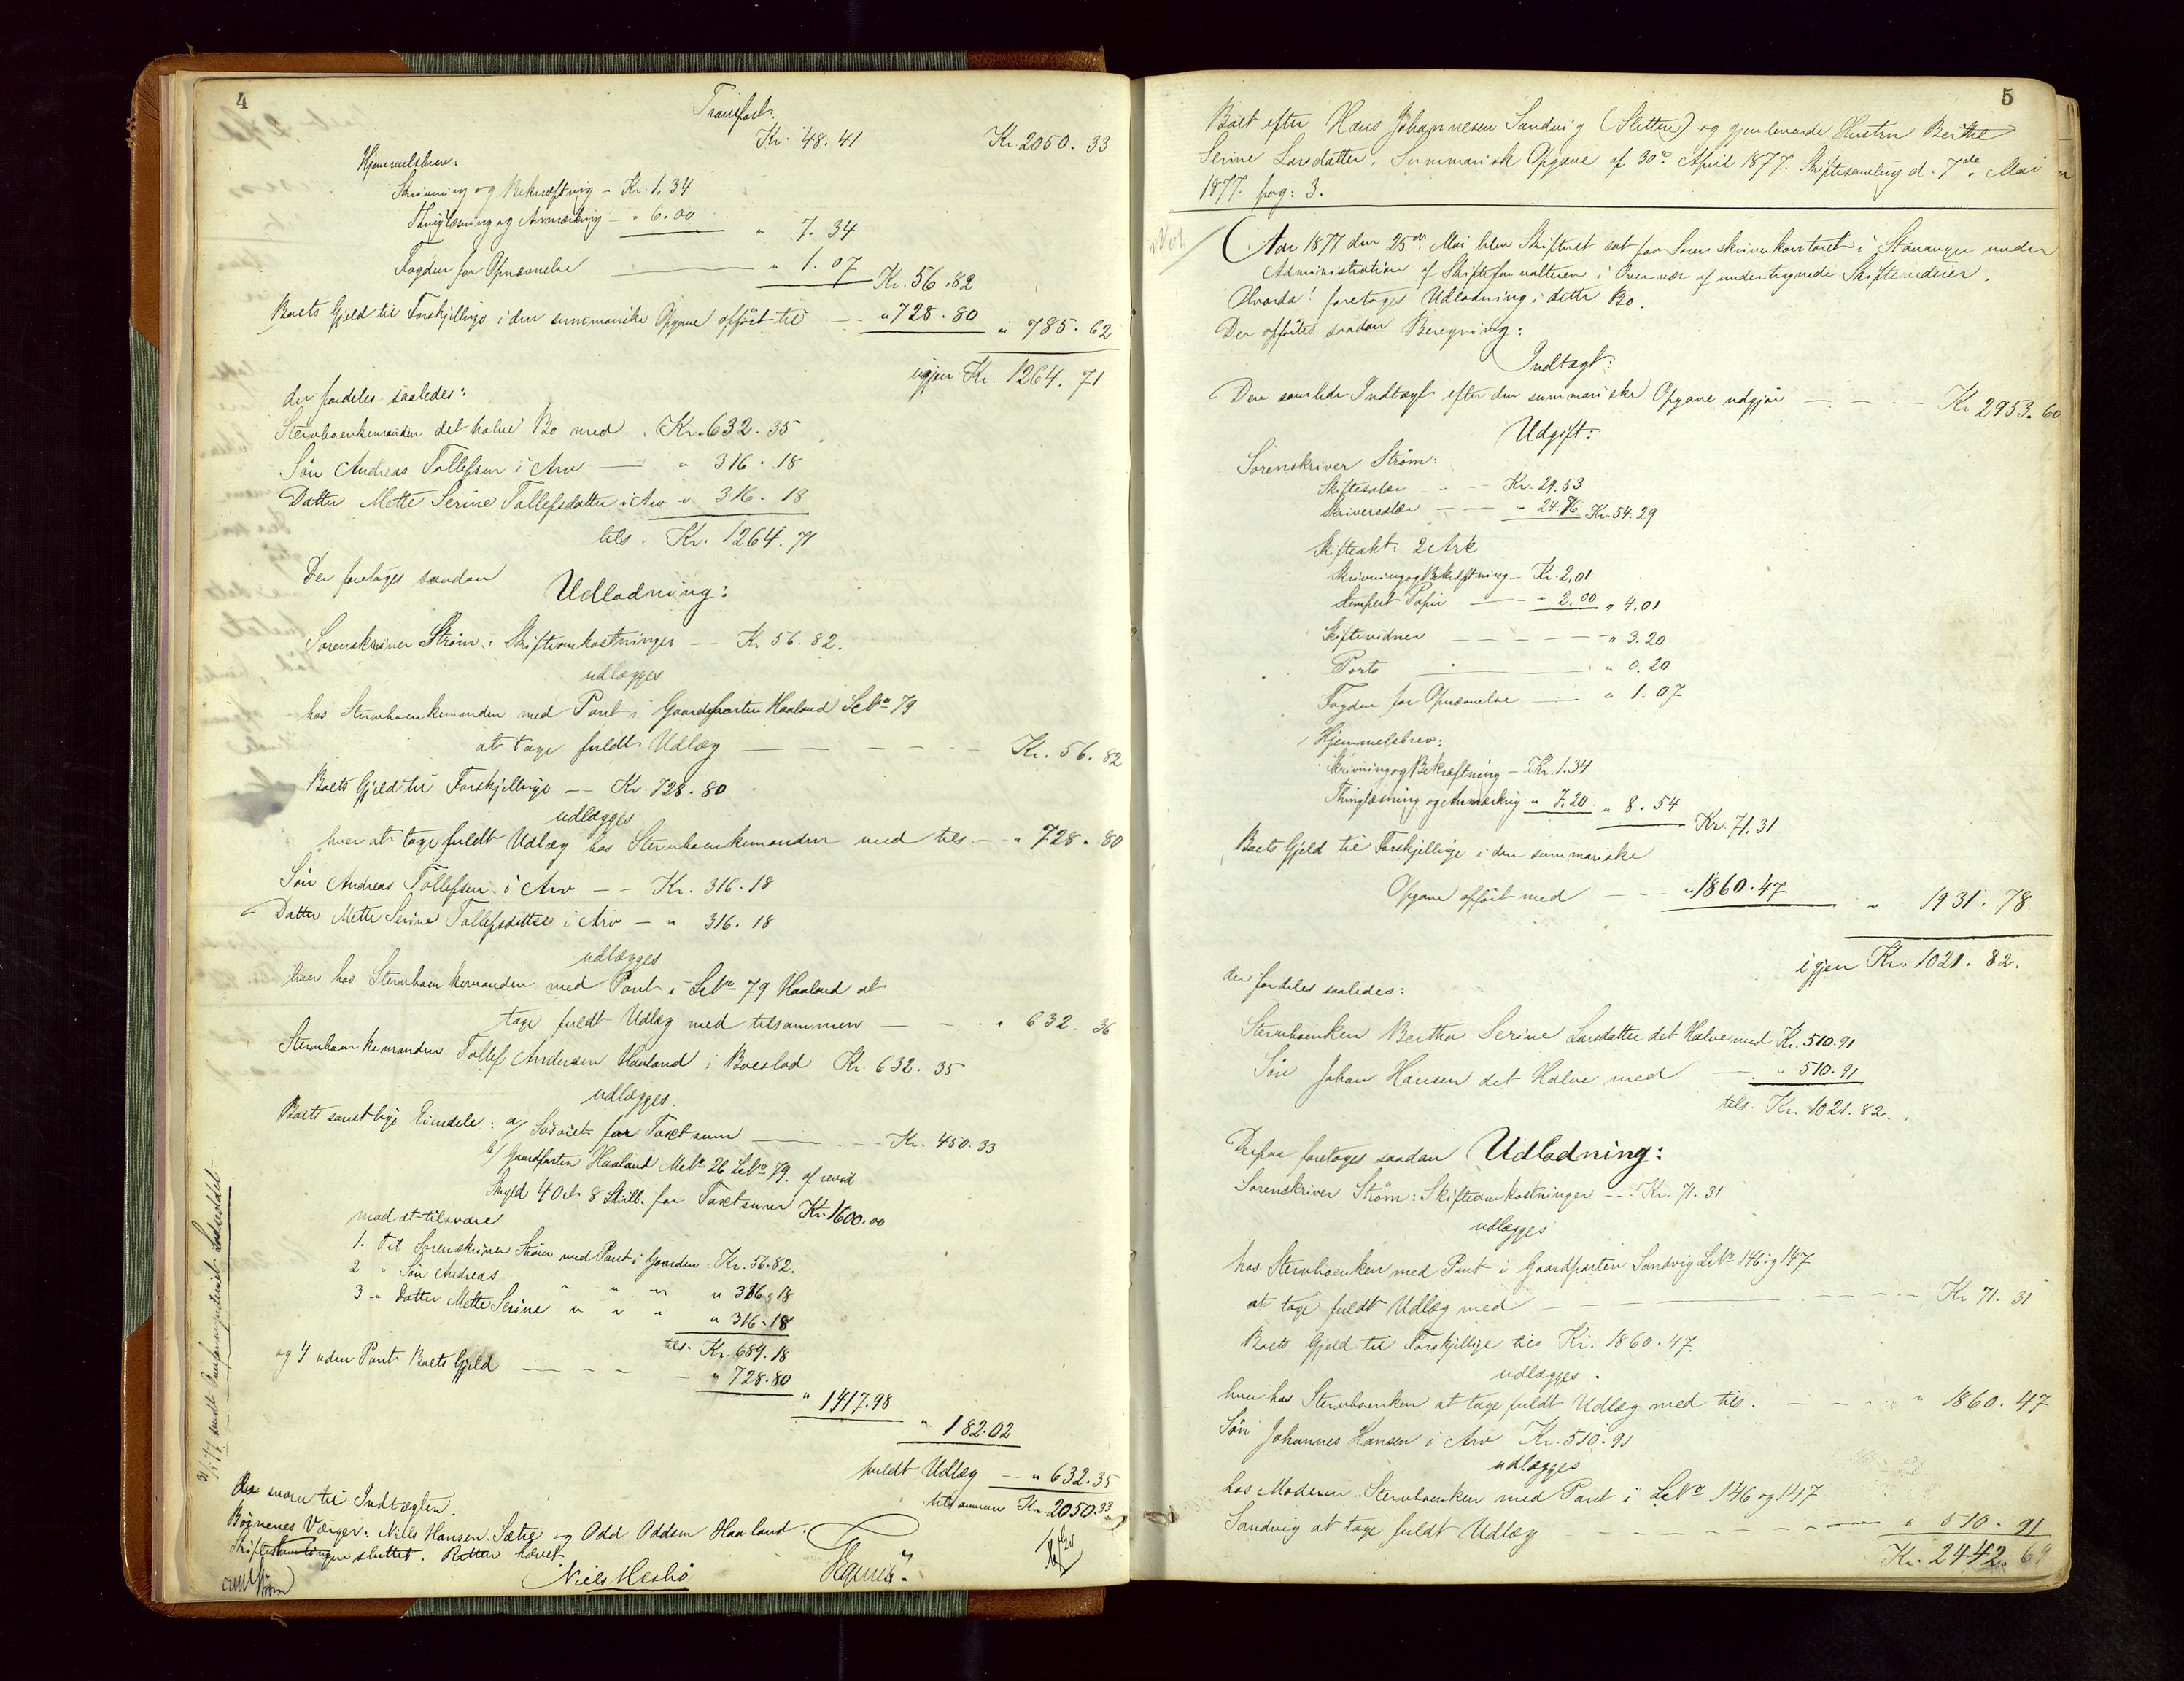 4
Transport.
Kr. 48. 41 Kr. 2050. 33
Hjemmelsbrev:
Skrivning og Bekræftning – Kr. 1,34
Thinglæsning og Anmærkning – " 6.00 " 7. 34
Fogden for Opnævnelse — " 1.07 Kr. 56.82
Boets Gjeld til Forskjellige i den summariske Opgave opført til — " 728.80 " 785. 62
igjen Kr. 1264. 71
der fordeles saaledes:
Stervboenkemanden det halve Bo med . Kr. 632. 35
Søn Andreas Tollefsen i Arv — " 316. 18
Datter Mette Serine Tollefsdatter i Arv " 316. 18
tils. Kr. 1264. 71
Der foretages saadan
Udlodning:
Sorenskriver Strøm: Skifteomkostninger — Kr. 56. 82.
udlægges
hos Stervboenkemanden med Pant i Gaardparten Haaland LNo 79
at tage fuldt Udlæg — — — Kr. 56. 82
Boets Gjeld til Forskjellige — Kr. 728. 80
udlægges
hver at tage fuldt Udlæg hos Stervboenkemanden med tils. — " 728. 80
Søn Andreas Tollefsen i Arv — Kr. 316. 18
Datter Mette Serine Tollefsdatter i Arv — " 316. 18
udlægges
hver hos Stervboenkemanden med Pant i LNo 79 Haaland at
tage fuldt Udlæg med tilsammen — — " 632. 36
Stervboenkemanden Tollef Andersen Haaland i Boeslod Kr. 632. 35
udlægges.
Boets samtlige Eiendele: a/ Løsøret for Taxtsum — Kr. 450. 33
b/ Gaardparten Haaland MNo 26 LNo 79. af revid.
Skyld 4 Ort 8 Skill. for Taxtsum Kr. 1600.00
mod at tilsvare
1. Til Sorenskriver Strøm med Pant i Gaarden: Kr. 56.82.
2 " Søn Andreas " " " " 316. 18
3 " Datter Mette Serine " " " " 316. 18
tils. Kr. 689.18
og 4 uden Pant Boets Gjeld — — — " 728.80
" 1417.98
" 182.02
fuldt Udlæg — " 632. 35
tilsammen Kr. 2050.33
der svarer til Indtægten.
Børnenes Værger: Niels Hansen Sætre og Odd Oddsen Haaland.
Skiftesamlingen sluttet. Retten hævet
Strøm Niels Hesbø
5
Boet efter Hans Johannesen Sandvig (Sletten) og gjenlevende Hustru Berthe
Serine Larsdatter. Summarisk Opgave af 30te April 1877. Skiftesamling d. 7de Mai
1877 pag: 3.
Aar 1877 den 25de Mai blev Skifteret sat paa Sorenskriverkontoret i Stavanger under
Administration af Skifteforvalteren i Overvær af undertegnede Skiftevidner.
Hvorda! foretoges Udlodning i dette Bo.
Der opførtes saadan Beregning:
Indtægt:
Den samlede Indtægt efter den summariske Opgave udgjør — — — Kr. 2953. 60
Udgift:
Sorenskriver Strøm:
Skiftesalær — — Kr. 29,53
Skriversalær — — " 24.76 Kr. 54.29
Skifteakt: 2 Ark
Skrivning og Bekræftning — Kr. 2,01
Stemplet Papir — " 2,00 " 4.01
Skiftevidner — — — — " 3. 20
Porto — — " 0. 20
Fogden for Opnævnelse — " 1. 07
Hjemmelsbrev:
Skrivning og Bekræftning — Kr. 1.34
Thinglæsning og Anmærkning " 7.20 " 8. 54 Kr. 71.31
Boets Gjeld til Forskjellige i den summariske
Opgave opført med — — " 1860.47 " 1931. 78
igjen Kr. 1021. 82.
der fordeles saaledes:
Stervboenken Berthe Serine Larsdatter det Halve med Kr. 510.91
Søn Johan Hansen det Halve med — " 510.91
tils. Kr. 1021. 82.
Derpaa foretoges saadan Udlodning:
Sorenskriver Strøm: Skifteomkostninger — Kr. 71. 31
udlægges
hos Stervboenken med Pant i Gaardparten Sandvig LNo 146 og 147
at tage fuldt Udlæg med — — — — Kr. 71. 31
Boets Gjeld til Forskjellige tils Kr. 1860. 47
udlægges.
hver hos Stervboenken at tage fuldt Udlæg med tils. — — " 1860. 47
Søn Johannes Hansen i Arv Kr. 510. 91
udlægges
hos Moderen Stervboenken med Pant i LNo 146 og 147
Sandvig at tage fuldt Udlæg — — — — " 510. 91
Kr. 2442. 69